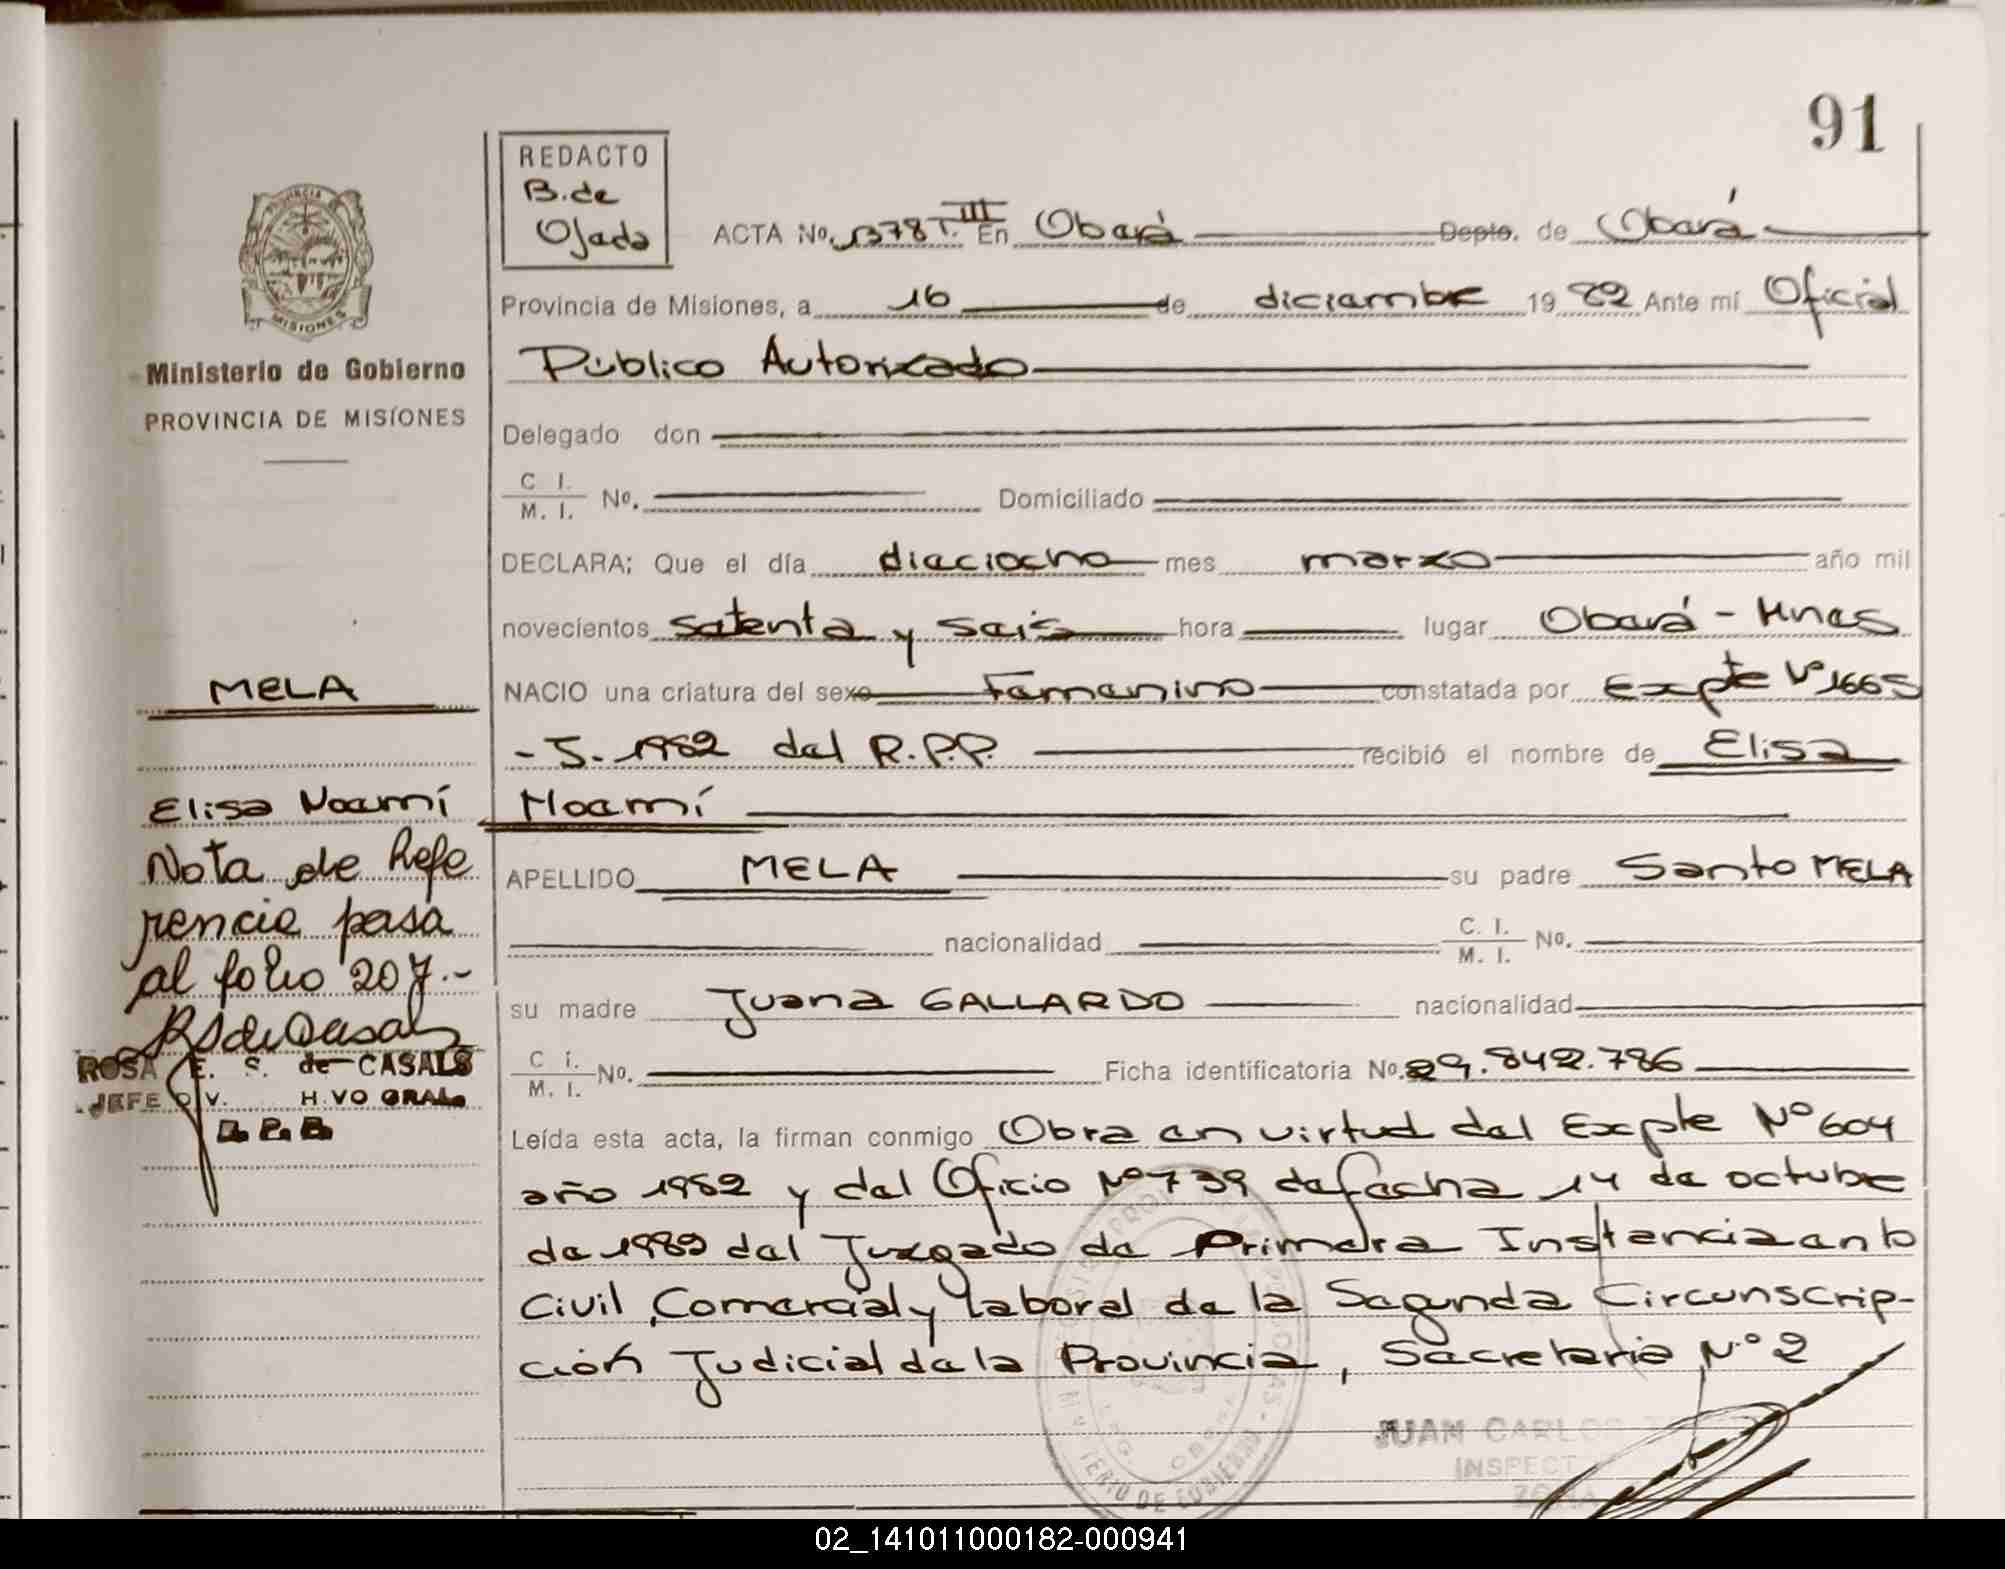 91
REDACTO
B. de
Ojeda
ACTA No. 1378 T. III En Oberá Depto. de Oberá
PROVINCIA
MISIONES
Provincia de Misiones, a 16 de diciembre 1982 Ante mí Oficial
Público Autorizado
Ministerio de Gobierno
PROVINCIA DE MISIONES
Delegado don
C I.
M. I. No. Domiciliado
DECLARA; Que el día dieciocho mes marzo año mil
novecientos setenta y seis hora lugar Oberá - Mnes
MELA
NACIO una criatura del sexo Femenino constatada por Expte Nº 1665
- J. 1982 del R.P.P. recibió el nombre de Elisa
Elisa Noemí
Noemí
Nota de Refe
rencia pasa
al folio 207.-
APELLIDO MELA su padre Santo MELA
nacionalidad C. I.
M. I. No.
su madre Juana GALLARDO nacionalidad
ROSA E. S. de CASALS
JEFE DIV. H. VO GRAL.
D. P. B.
C i.
M. I. No. Ficha identificatoria No. 29.842.786
Leída esta acta, la firman conmigo Obra en virtud del Expte Nº 604
año 1982 y del Oficio Nº 739 de fecha 14 de octubre
de 1982 del Juzgado de Primera Instancia en lo
Civil, Comercial y Laboral de la Segunda Circunscrip-
ción Judicial de la Provincia, Secretaria N.º 2
MINISTERIO DE GOBIERNO
JUAN CARLOS
INSPECT
ZONA
02_141011000182-000941